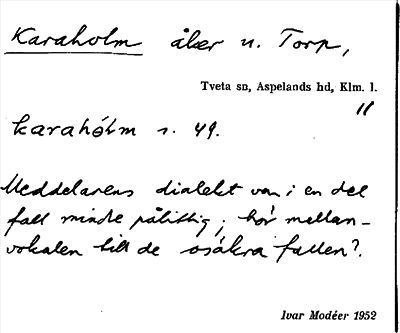 Karaholm åker u. Torp,
Tveta sn, Aspelands hd, Klm. l.
11
karahólm s. 49.
Meddelarens dialekt var i en del
fall mindre pålitlig; hör mellan-
vokalen till de osäkra fallen?.
Ivar Modéer 1952